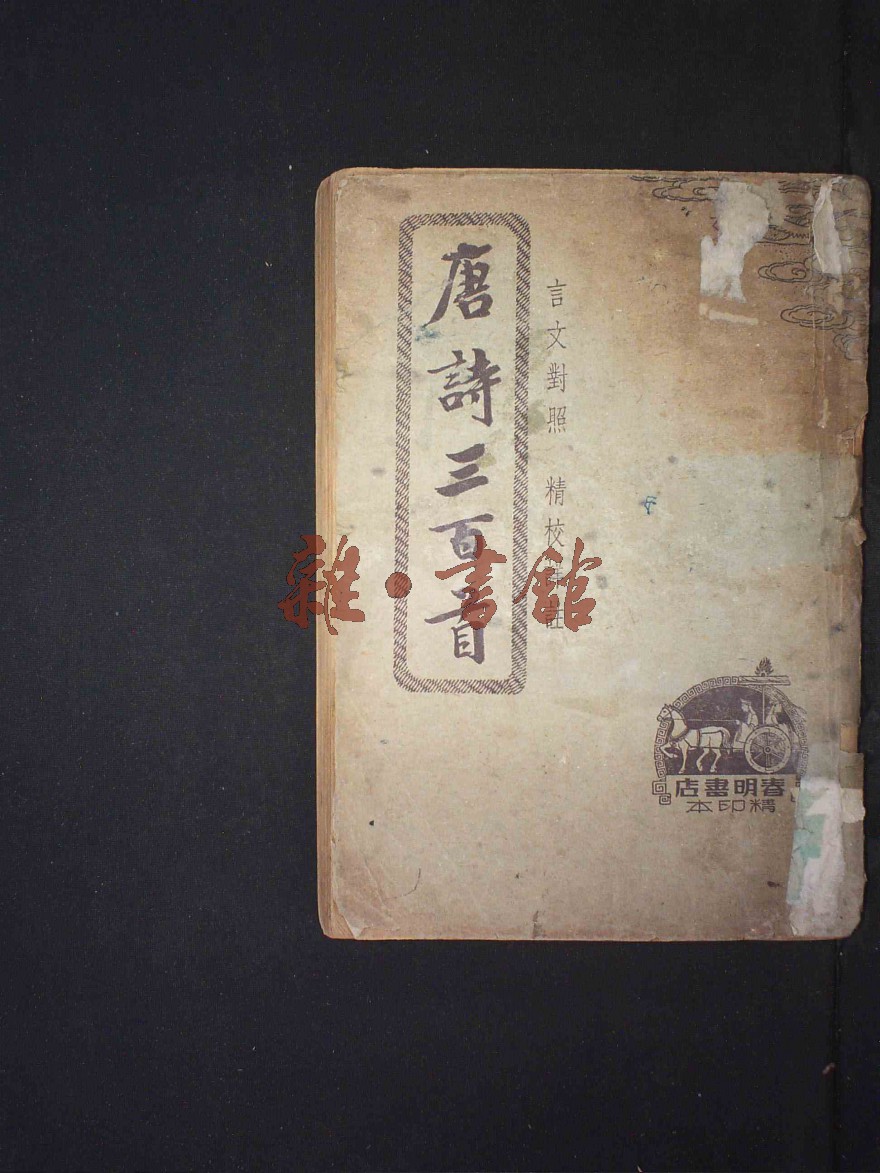 言文對照　精校詳註
唐詩三百首
春明書店
精印本
雜·書館